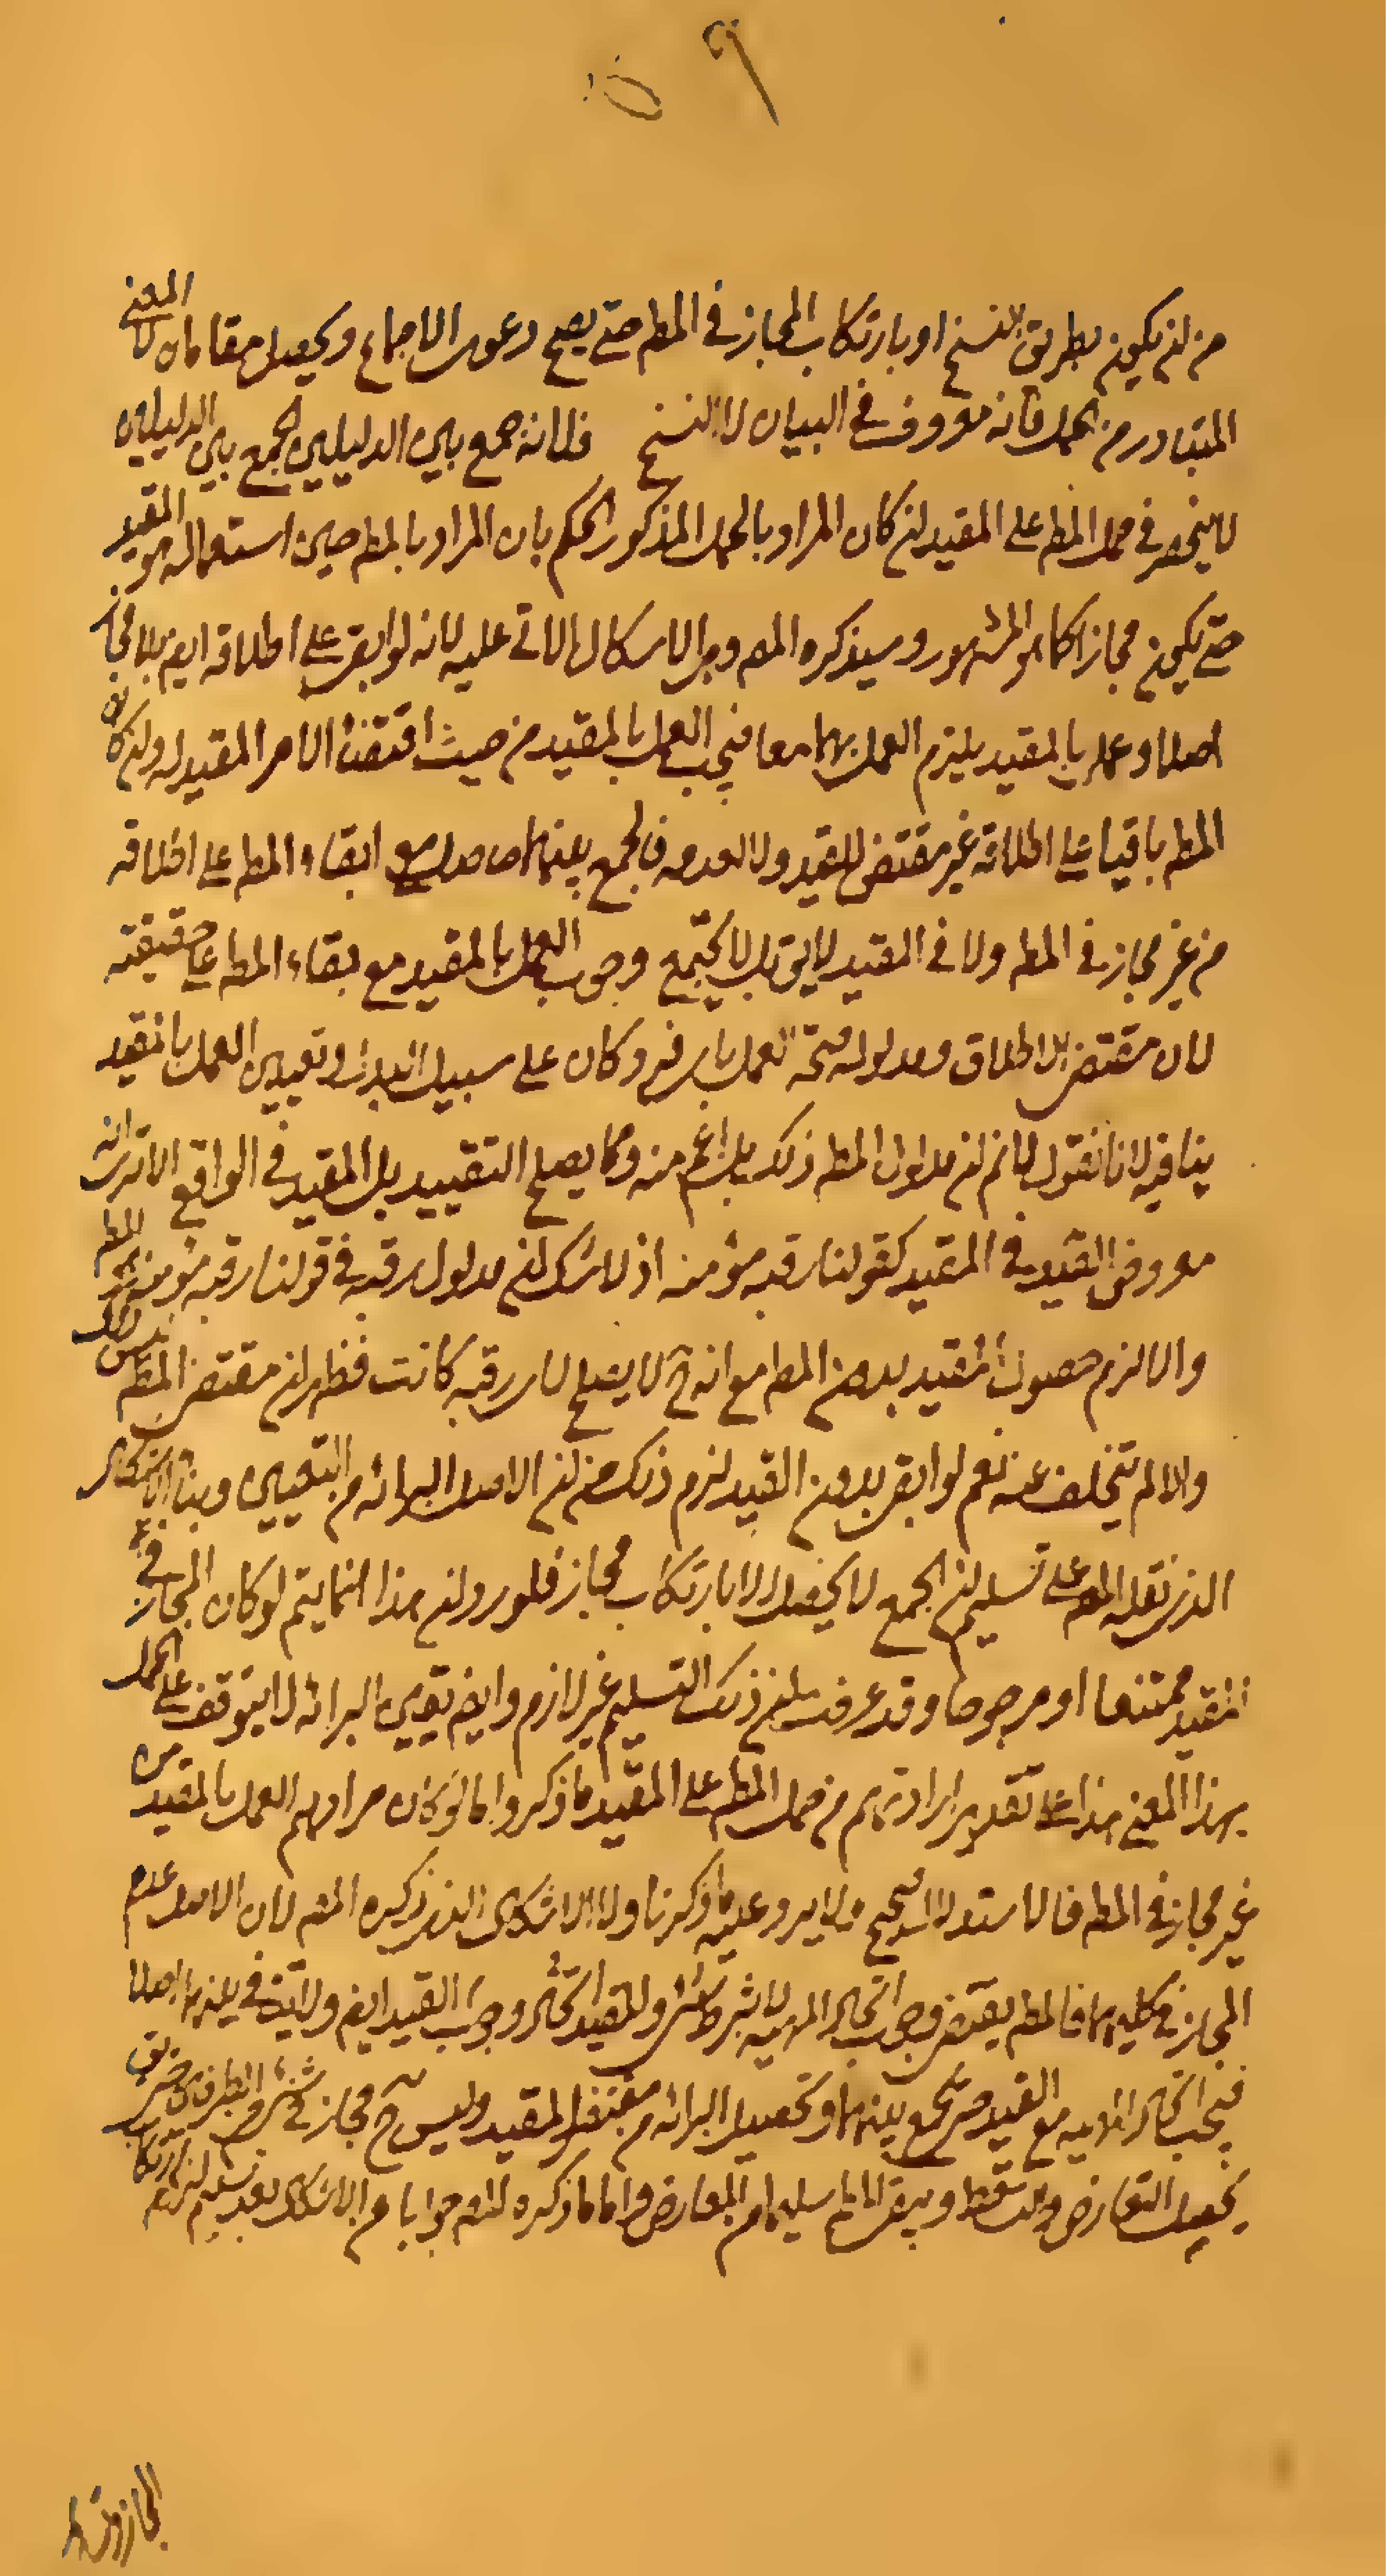 من ان يكون بطريق النسخ او بارتكاب المجاز في المط حتى يصح دعوى الاجماع ويحصل مقاماه لا المعنى
المتبادر من الحمل فانه معروف في البيان لا النسخ فلانه جمع بين الدليلين الجمع بين الدليلين
لا ينحصر في حمل المط على المقيد ان كان المراد بالحمل المذكور الحكم بان المراد بالمط حين استعماله هو المقيد
حتى يكون مجازا كما هو المشهور وسيذكره المصـ وجه الاشكال الاتي عليه لانه لو ابقى على اطلاقه ايضـ بلا مجاز
اصلا وعمل بالمقيد يلزم العمل بهما معا فيجب العمل بالمقيد من حيث اقتضاء الامر المقيد له وان كان
المط باقيا على اطلاقه غير مقتض للقيد ولا لعدمه فالجمع بينهما حاصل مع ابقاء المط على اطلاقه
من غير مجاز في المط ولا في المقيد لا يقال لا يجتمع وجوب العمل بالمقيد مع بقاء المط على حقيقته
لان مقتضى الاطلاق ومدلوله صحة العمل باي فرد كان على سبيل البدل وتعيين العمل بالمقيد
ينافيه لانا نقول لا نم ان مدلول المط ذلك بل اعم منه ومما يصلح التقييد بل المقيد في الواقع الا ترى انه
معروض القيد في المقيد كقولنا رقبة مؤمنة اذ لا شك ان مدلول رقبة في قولنا رقبة مؤمنة هو المط
والا لزم حصول المقيد بدون المط مع انه ح لا يصلح لاي رقبة كانت فظهر ان مقتضى المط ليس ذلك
والا لم يتخلف عنه نعم لو ابقى بدون القيد لزم ذلك من ان الاصل البرائه من التعيين وبناء الاشكال
الذي نقله المصـ على تسليم ان الجمع لا يحصل الا بارتكاب مجاز فلا ورود له هذا انما يتم لو كان المجاز في
المقيد ممتنعا او مرجوحا وقد عرفت ان ذلك التسليم غير لازم وايضـ تعيين البرائه لا يتوقف على الحمل
بهذا المعنى هذا على تقدير ارادتهم من حمل المط على المقيد ما ذكروا اما لو كان مرادهم العمل بالمقيد من
غير مجاز في المط فالاستدلال صحيح ولا يرد عليه ما ذكرنا ولا الاشكال الذي ذكره المصـ لان الاصل عدم
المجاز في كليهما فالمط يقتضي وجوب ايجاد المهية لا بشرط شيء والمقيد ايجاد وجوب القيد ايضـ ولا تنافي بينهما اصلا
فيجب ايجاد المهية مع القيد حتى يجمع بينهما وتحصيل البرائه من مقتضى المقيد وليس ح مجاز في شيء من الطرفين حتى
يحصل التعارض والتساقط ويبقى سليما من المعارض واما ما ذكره المصـ جوابا من الاشكال بعد تسليم لزوم ارتكاب
المجاز